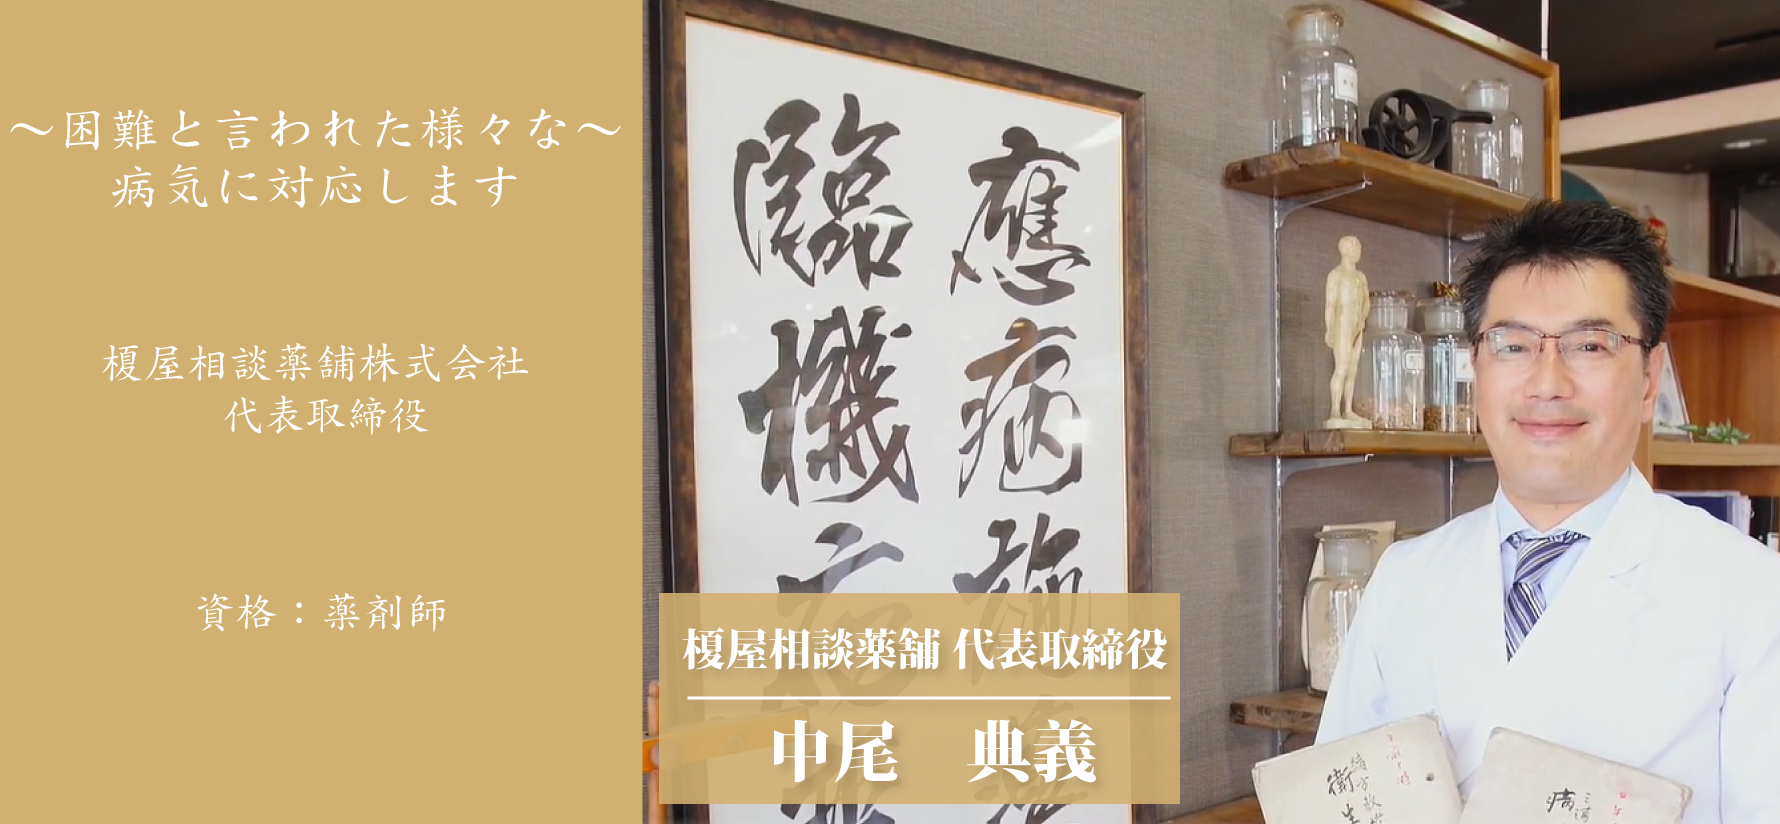 ～困難と言われた様々な～
病気に対応します
榎屋相談薬舗株式会社
代表取締役
資格：薬剤師
應病施
臨機
榎屋相談薬舗 代表取締役
中尾 典義